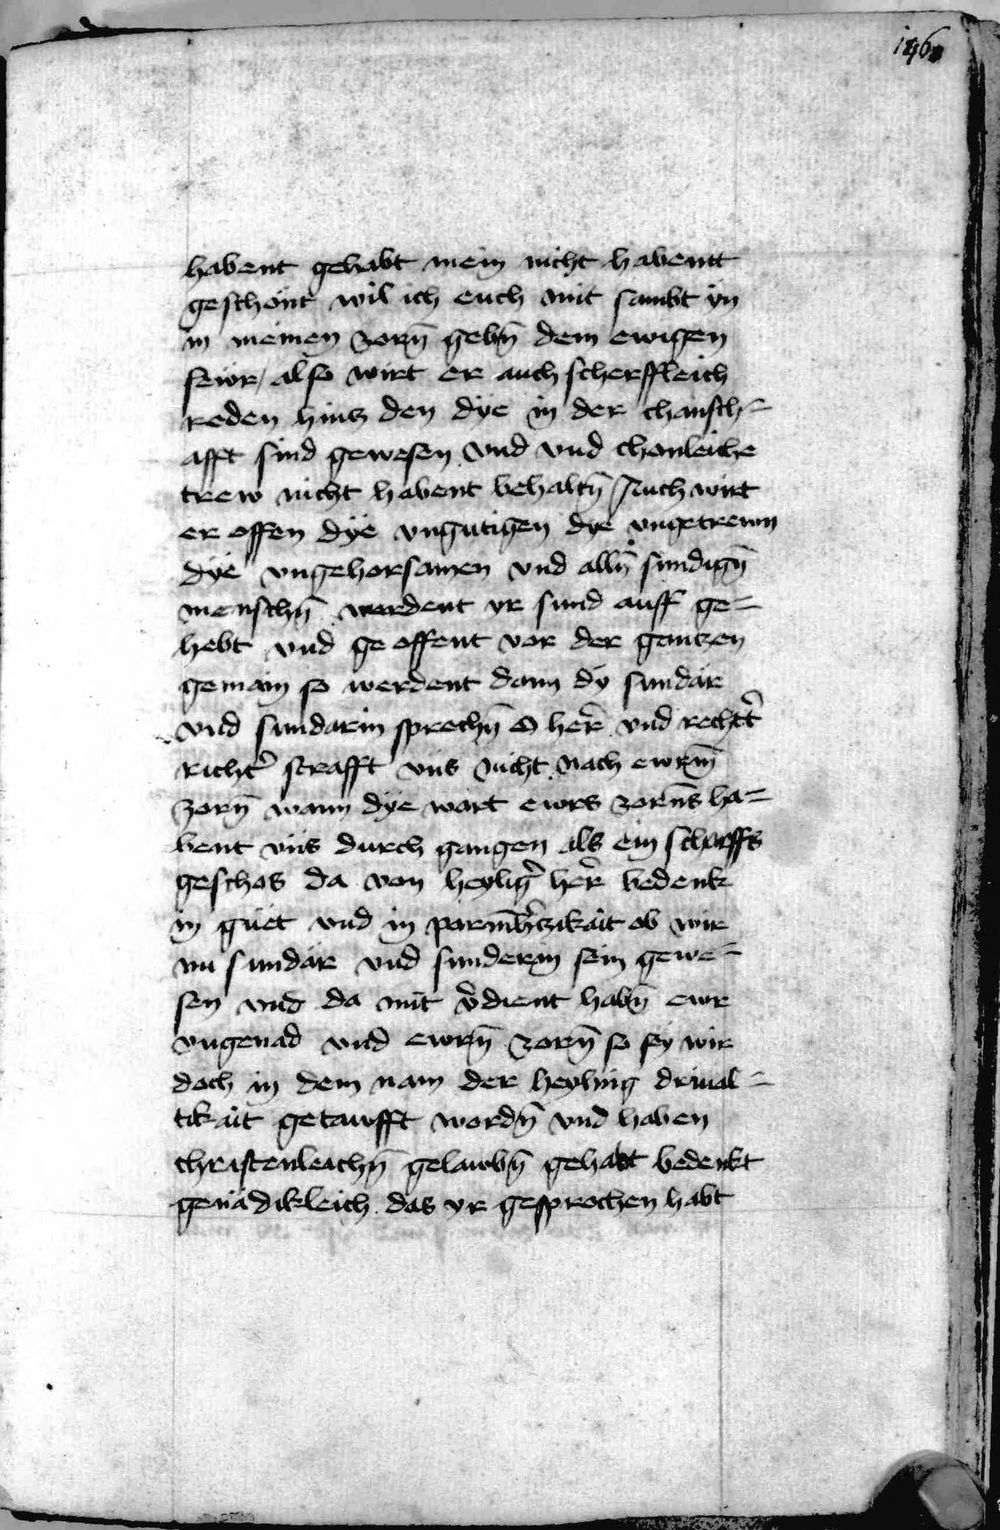 146
habent gehabt mein nicht habentt
geschönt wil ich euch mit sambt yn
in meinen zorn̄ gebn̄ dem ewigen
fewr / also wirt er auch scherffleich
reden hinz den dye in der chansch=
afft sind gewesen vnd vnd chonleiche
trew nicht habent behaltn̄ / Auch wirt
er offen dÿe vngutigen dÿe vngetrewn
dÿe vngehorsamen vnd alln̄ sundign̄
menschn̄ werdent yr sund auff ge=
hebt vnd geoffent vor der gantzen
gemain so werdent dann dy sundär
vnd sundarin sprechn̄ O her̄ vnd rechtt̄
richt̄ strafft vns nicht nach ewrm̄
zorn̄ wann dÿe wart ewrs zorns ha=
bent vns durch gangen als ein scharffs
geschos da von heyliḡ her̄ bedenk
in güet vnd in parmh̄czikait ob wir
nu sundär vnd sunderin sein gewe=
sen vnd da mit v̄dient habn̄ ewr
vngenad vnd ewrn̄ zorn̄ so sey wir
doch in dem nam der heyling driual=
tikait getaufft wordn̄ vnd haben
christenleichn̄ gelaubn̄ gehabt bedenkt
genädikleich das yr gesprochen habt